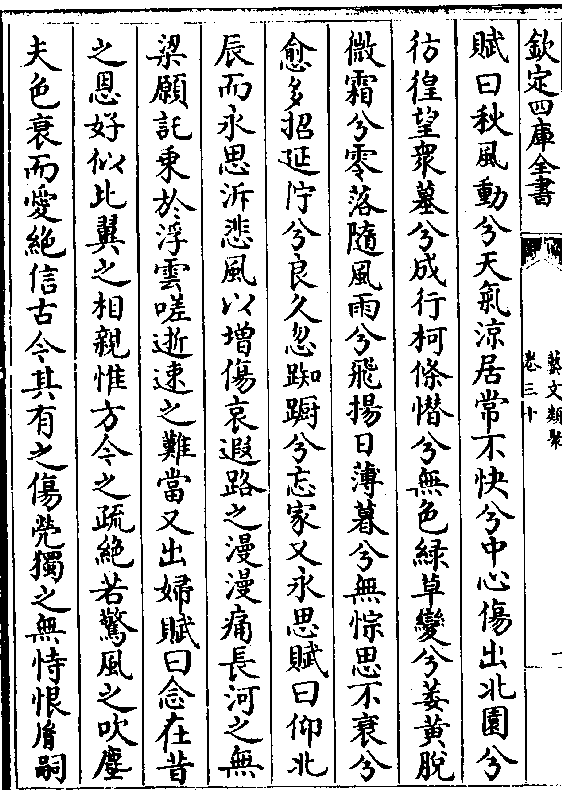 欽定四庫全書
藝文類聚
卷三十
賦曰秋風動兮天氣涼居常不快兮中心傷出北園兮
彷徨望衆墓兮成行柯條憯兮無色綠草變兮萎黃脫
微霜兮零落隨風雨兮飛揚日薄暮兮無悰思不衰兮
愈多招延佇兮良久忽踟躕兮忘家又永思賦曰仰北
辰而永思泝悲風以增傷哀遐路之漫漫痛長河之無
梁願託乘於浮雲嗟逝速之難當又出婦賦曰念在昔
之恩好似比翼之相親惟方今之疏絶若驚風之吹塵
夫色衰而愛絶信古今其有之傷煢獨之無恃恨胤嗣